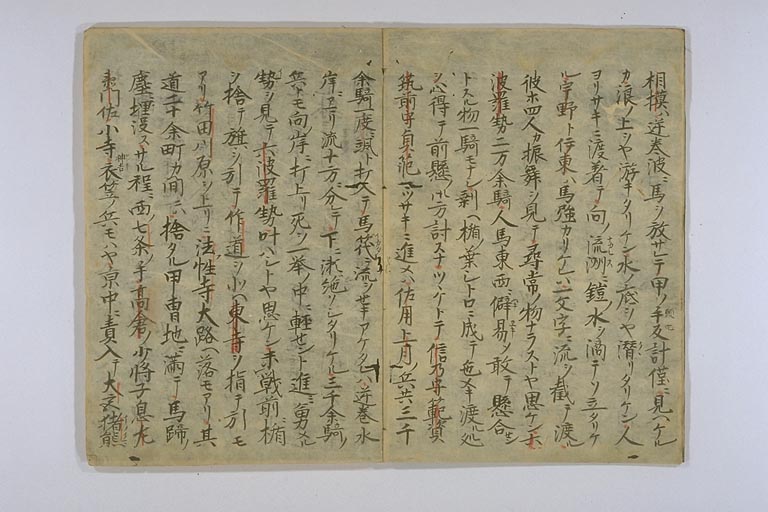 相摸ハ逆巻波ニ馬ヲ放サレテ甲ノ手反計僅ニ見ヘケル
カ浪ノ上ヲヤ游キタリケン水ノ底ヲヤ潜リタリケン人
ヨリサキニ渡着テ向ノ流洲ニ鎧ノ水シ滴テソ立タリケ
ル宇野ト伊東ハ馬強カリケレハ一文字ニ流ヲ截テ渡ル
彼ホ四人カ振舞ヲ見テ尋常ノ物ナラストヤ思ケン六
波羅勢二万余騎人馬東西ニ僻易シ敢テ懸合セン
トスル物一騎モナシ剰ヘ楯ノ葉シトロニ成テ色メキ渡ル処
ヲ心得テ前懸ノ御方討スナツヽケトテ信乃守範資
筑前守貞範マツサキニ進メハ佐用上月ノ兵共三千
余騎一度ニ颯ト打入テ馬筏ニ流ヲせキアケタレハ逆巻水
岸ニアマリ流十方ニ分テ下ニ淵絶ソシタリケル三千余騎ノ
兵トモ向ノ岸ニ打上リ死ヲ一挙ノ中ニ軽せント進ミ勇メル
勢ヲ見テ六波羅勢叶ハシトヤ思ケン未戦前ニ楯
ヲ捨テ旗ヲ引テ作道ヲ小ヘ東寺ヲ指テ引モ
アリ竹田川原ヲ上リニ法性寺大路ヘ落モアリ其
道二十余町カ間ニハ捨タル甲冑地ニ満テ馬蹄ノ
塵ニ埋没スサル程ニ西七条ノ手高倉ノ少将ノ子息左
衛門佐小寺衣笠ノ兵モハヤ京中ニ責入テ大宮猪熊